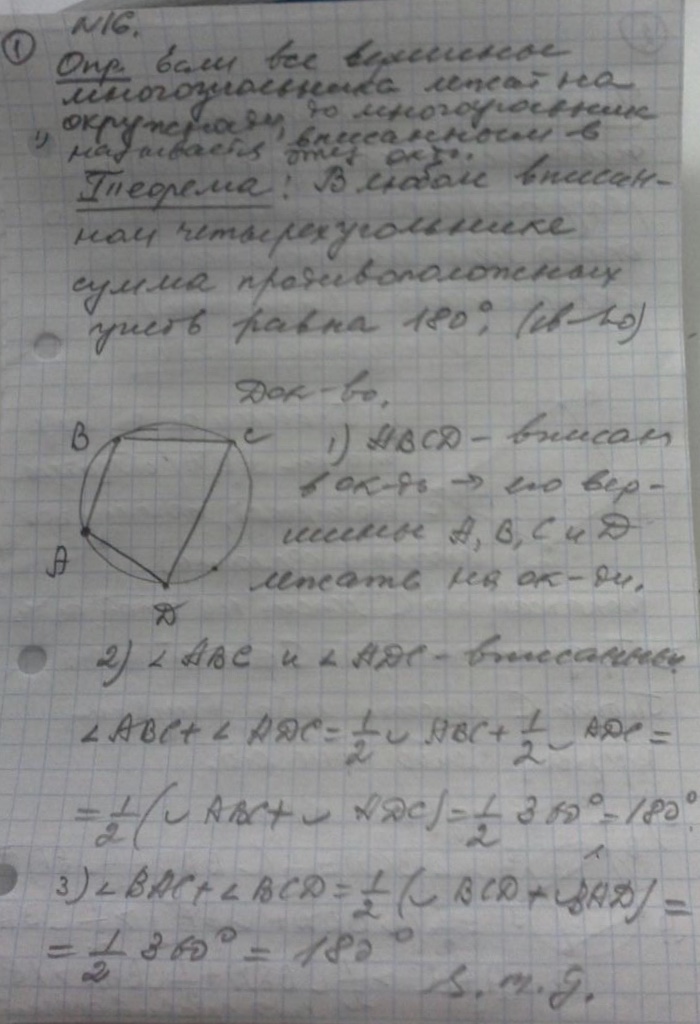 N16.
① Опр. Если все вершины
многоугольника лежат на
окружности, то многоугольник
называется вписанным в
окр.
Теорема: В любом вписан-
ном четырехугольнике
сумма противоположных
углов равна 180°. (св-во)
Док-во.
B C
1) ABCD - вписан
в ок-ть → его вер-
шины A, B, C и D
A
лежать на ок-ти.
D
2) ∠ ABC и ∠ ADC - вписанные
∠ ABC + ∠ ADC = 1/2 ◡ ABC + 1/2 ◡ ADC =
= 1/2 (◡ ABC + ◡ ADC) = 1/2 360° = 180°
3) ∠ BAC + ∠ BCD = 1/2 (◡ BCD + ◡ BAD) =
= 1/2 360° = 180°
ч. т. д.